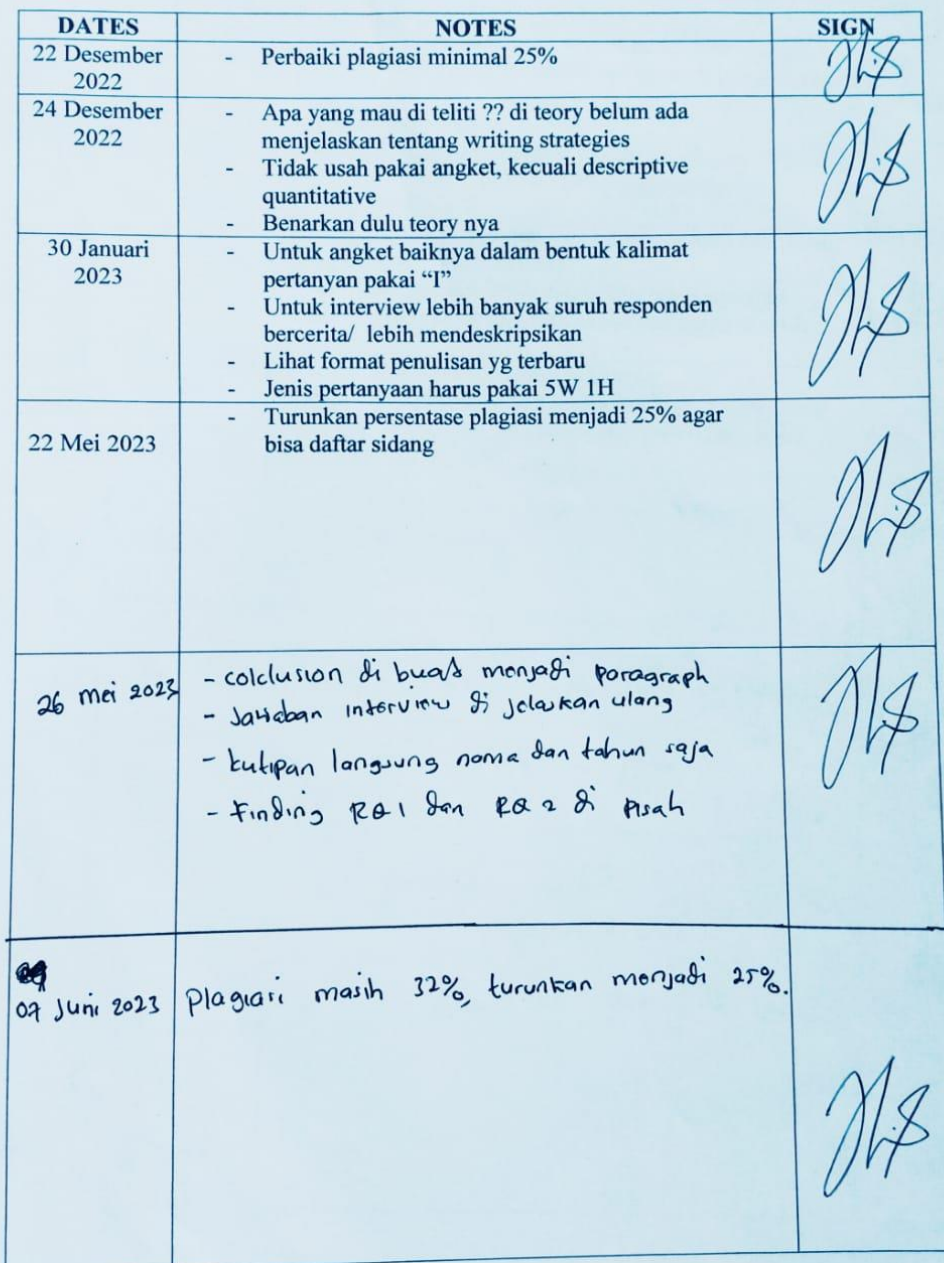 DATES NOTES SIGN
22 Desember
2022
- Perbaiki plagiasi minimal 25%
24 Desember
2022
- Apa yang mau di teliti ?? di teory belum ada
menjelaskan tentang writing strategies
- Tidak usah pakai angket, kecuali descriptive
quantitative
- Benarkan dulu teory nya
30 Januari
2023
- Untuk angket baiknya dalam bentuk kalimat
pertanyan pakai “I”
- Untuk interview lebih banyak suruh responden
bercerita/ lebih mendeskripsikan
- Lihat format penulisan yg terbaru
- Jenis pertanyaan harus pakai 5W 1H
22 Mei 2023
- Turunkan persentase plagiasi menjadi 25% agar
bisa daftar sidang
26 mei 2023
- colclusion di buat menjadi paragraph
- Jawaban interview di jelaskan ulang
- kutipan langsung nama dan tahun saja
- Finding RQ1 dan RQ2 di pisah
07 Juni 2023
Plagiasi masih 32%, turunkan menjadi 25%.